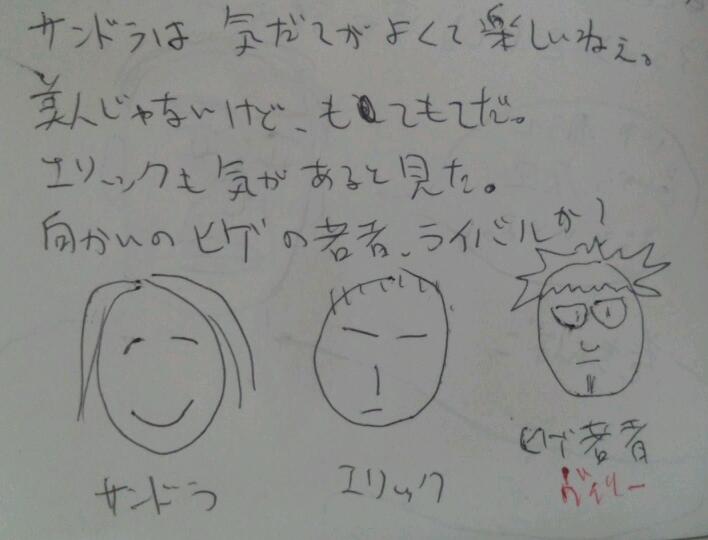 サンドラは気だてがよくて楽しいねぇ。
美人じゃないけど、もてもてだ。
エリックも気があると見た。
向かいのヒゲの若者、ライバルか?
サンドラ
エリック
ヒゲ若者